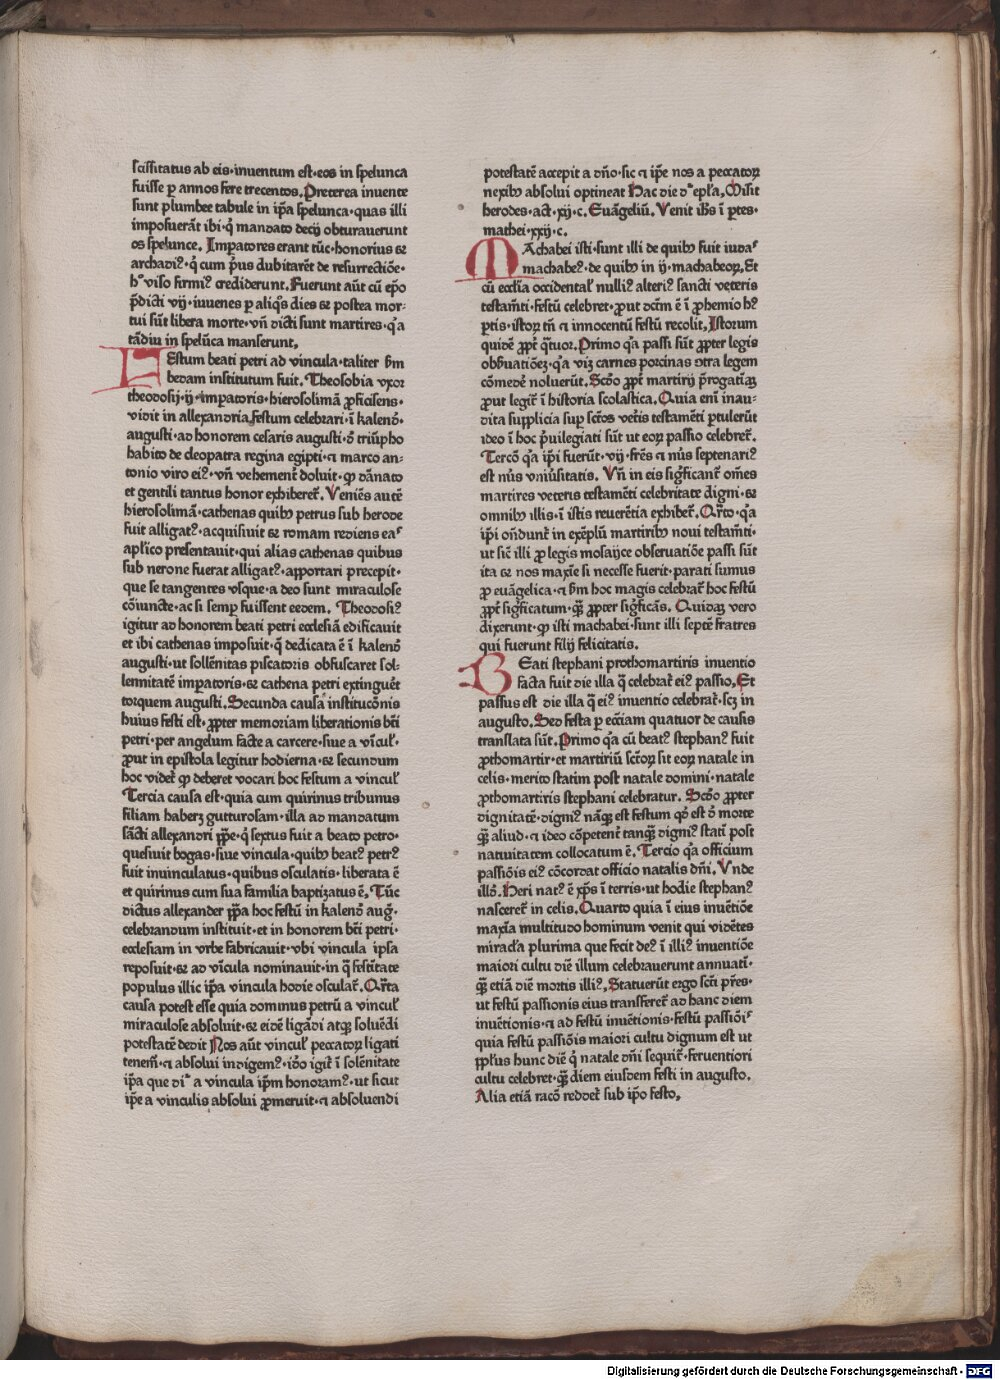 scissitatus ab eis·inuentum est·eos in spelunca
fuisse ꝑ annos fere trecentos. Preterea inuente
sunt plumbee tabule in ip̄a spelunca·quas illi
imposuerāt ibi·q̇ mandato decij obturauerunt
os spelunce. Impatores erant tūc·honorius ⁊
archadiꝰ·q̇ cum pͥus dubitarēt de resurrectiōe·
hͦ viso firmiꝰ crediderunt. Fuerunt aūt cū ep̄o
p̄dicti vij·iuuenes ꝑ aliqͦs dies ⁊ postea mor⸗
tui sūt libera morte·vn̄ dicti sunt martires·qͥa
tādiu in spelūca manserunt.
Estum beati petri ad vincula·taliter ẜm
bedam institutum fuit. Theosobia vxor
theodosij·ij·impatoris·hierosolimā ꝓficisens·
vidit in allexandria festum celebrari·ī kalend̄·
augusti·ad honorem cesaris augusti·ð triūpho
habito de cleopatra regina egipti·⁊ marco an⸗
tonio viro eiꝰ·vn̄ vehement̄ doluit·ꝙ dānato
et gentili tantus honor exhiberet̄. Veniēs autē
hierosolimā·cathenas quibꝰ petrus sub herode
fuit alligatꝰ·acquisiuit ⁊ romam rediens eaˢ
apl̄ico presentauit·qui alias cathenas quibus
sub nerone fuerat alligatꝰ·apportari precepit·
que se tangentes vsque·a deo sunt miraculose
cōiuncte·ac si semꝑ fuissent eedem. Theodosiꝰ
igitur ad honorem beati petri ecclesiā edificauit
et ibi cathenas imposuit·q̄ dedicata ē ī kalend̄
augusti·ut sollēnitas piscatoris obfuscaret sol⸗
lennitatē imꝑatoris·⁊ cathena petri extinguēt
torquem augusti. Secunda causa institucōnis
huius festi est·ꝓpter memoriam liberationis bt̄i
petri·per angelum facte a carcere·siue a vīcul̄·
ꝓut in epistola legitur hodierna·⁊ secundum
hoc videt̄ ꝙ deberet vocari hoc festum a vincul̄
Tercia causa est·quia cum quirinus tribunus
filiam haberꝫ gutturosam·illa ad mandatum
sācti allexandri p̄pe·q̇ sextus fuit a beato petro·
quesiuit bogas·siue vincula·quibꝰ beatꝰ petrꝰ
fuit inuinculatus·quibus osculatis·liberata ē
et quirinus cum sua familia baptizatus ē. Tūc
dictus allexander p̄pa hoc festū in kalend̄ aug̅·
celebrandum instituit·et in honorem bt̄i petri·
ecclesiam in vrbe fabricauit·vbi vincula ipsa
reposuit·⁊ ad vīcula nominauit·in q̄ festītate
populus illic ip̄a vincula hodie osculat̄. Qͣrta
causa potest esse quia dominus petrū a vincul̄
miraculose absoluit·⁊ eidē ligādi atqꝫ soluēdi
potestatē dedit Nos aūt vincul̄ peccatoꝝ ligati
tenem̄·⁊ absolui indigemꝰ·idō igit̄ ī solēnitate
ip̄a que diͬ a vincula ip̄m honoramꝰ·ut sicut
ip̄e a vinculis absolui ꝓmeruit·⁊ absoluendi
potestatē accepit a dn̄o·sic ⁊ ip̄e nos a peccatoꝝ
nexibꝰ absolui optineat Hac die dͬ epl̄a. Misit
herodes·act·xij·c. Euāgeliū. Venit ih̄s ī ꝑtes·
mathei·xxij·c.
MAchabei isti·sunt illi de quibꝰ fuit iudaˢ
machabeꝰ·de quibꝰ in ij·machabeoꝝ. Et
cū eccl̄ia occidental̄ nulliꝰ alteriꝰ sancti veteris
testam̄ti·festū celebret·ꝓut dctm̄ ē ī ꝓhemio hꝰ
ꝑtis·istoꝝ tn̄ ⁊ innocentū festū recolit. Istorum
quidē ꝓpt̄ q̄tuor. Primo qͥa passi sūt ꝓpter legis
obẜuatiōeꝫ·qͥa viꝫ carnes porcinas ↄtra legem
cōmedē noluerūt. Scd̄o ꝓpt̄ martirij p̄rogatiāꝫ
ꝓut legit̄ ī historia scolastica. Quia enī inau⸗
dita supplicia suꝑ scōs vetīs testamēti ꝑtulerūt
ideo ī hoc pͥuilegiati sūt ut eoꝝ passio celebret̄.
Tercō qͥa ip̄i fuerūt·vij·fr̄es ⁊ nūs septenariꝰ
est nūs vniūsitatis. Vn̄ in eis sigͥficant̄ om̄es
martires veteris testamēti celebritate digni·⁊
omnibꝰ illis·ī istis reuerētia exhibet̄. Qͣrto·qͥa
ip̄i on̄dunt̄ in exēplū martiribꝰ noui testam̄ti·
ut sic̄ illi ꝓ legis mosaijce obseruatiōe passi sūt
ita ⁊ nos maxīe si necesse fuerit·parati simus
ꝓ euāgelica·⁊ ẜm hoc magis celebrat̄ hoc festū
ꝓpt̄ sigͥficatum·qͣꝫ ꝓpter sigͥficās. Quidaꝫ vero
dixerunt·ꝙ isti machabei·sunt illi septē fratres
qui fuerunt filij felicitatis.
BEati stephani prothomartiris inuentio
facta fuit die illa q̄ celebrat̄ eiꝰ passio. Et
passus est die illa q̄ eiꝰ inuentio celebrat̄·scꝫ in
augusto. Sed festa ꝑ ecc̄iam quatuor de causis
translata sūt. Primo qͥa cū beatꝰ stephanꝰ fuit
ꝓthomartir·et martiriū sctōꝝ sit eoꝝ natale in
celis·merito statim post natale domini·natale
ꝓthomartiris stephani celebratur. Scd̄o ꝓpter
dignitatē·digniꝰ nāqꝫ est festum qd̄ est ð morte
qͣꝫ aliud·⁊ ideo cōpetent̄ tanqͣꝫ digniꝰ statī post
natiuitatem collocatum ē. Tercio qͥa officium
passiōis eiꝰ cōcordat officio natalis dn̄i. Vnde
illd̄. Heri natꝰ ē xp̄s ī terris·ut hodie stephanꝰ
nasceret̄ in celis. Quarto quia ī eius inuētiōe
maxīa multitudo hominum venit qui vidētes
mirac̄la plurima que fecit deꝰ ī illiꝰ inuentiōe
maiori cultu diē illum celebrauerunt annuatī·
qͣꝫ etiā diē mortis illiꝰ. Statuerūt ergo scī p̄res·
ut festū passionis eius transferet̄ ad hanc diem
inuētionis·⁊ ad festū inuētionis·festū passiōīˢ
quia festū passiōis maiori cultu dignum est ut
ppl̄us hunc diē q̇ natale dn̄i sequit̄·feruentiori
cultu celebret·qͣꝫ diem eiusdem festi in augusto.
Alia etiā racō reddet̄ sub ip̄o festo.
Digitalisierung gefördert durch die Deutsche Forschungsgemeinschaft - DFG